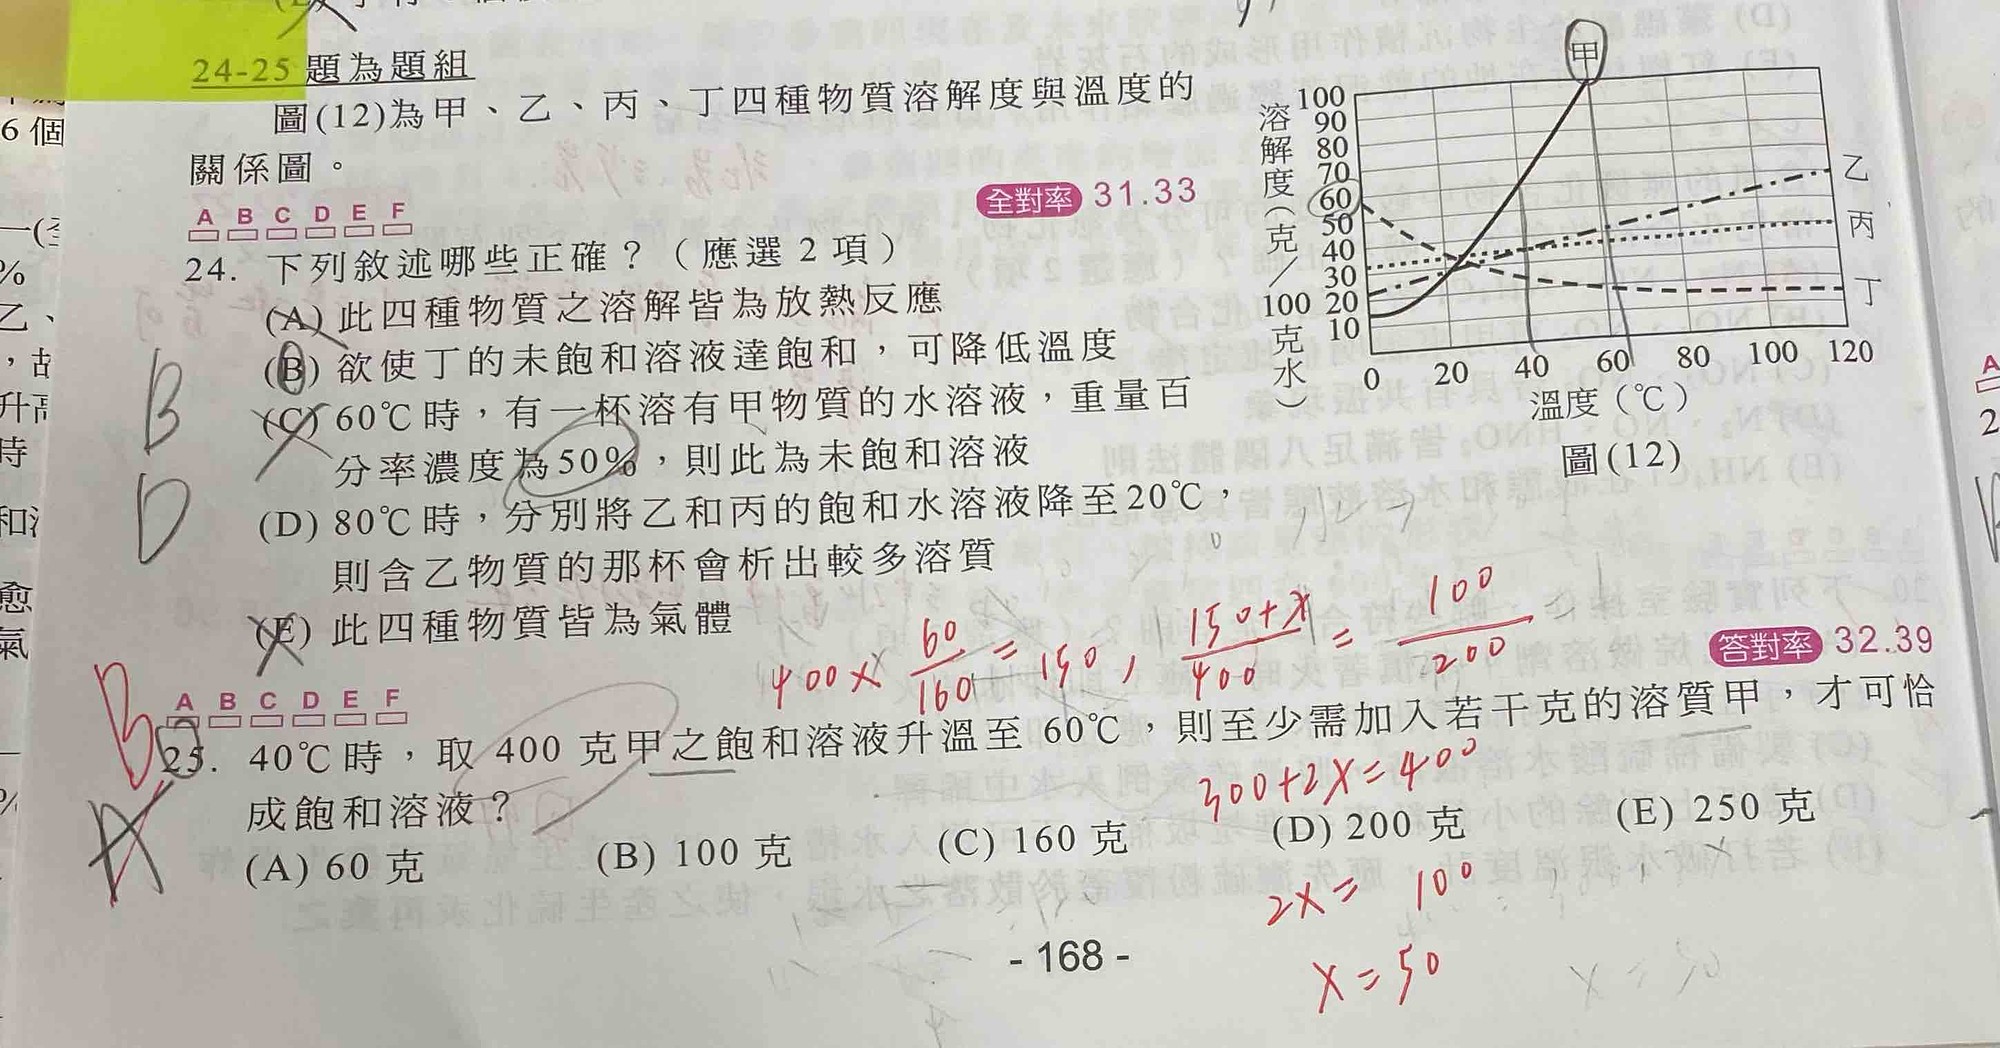 24-25 題為題組
圖(12)為甲、乙、丙、丁四種物質溶解度與溫度的
關係圖。
全對率 31.33
A B C D E F
24. 下列敘述哪些正確？（應選 2 項）
(A) 此四種物質之溶解皆為放熱反應
(B) 欲使丁的未飽和溶液達飽和，可降低溫度
(C) 60℃時，有一杯溶有甲物質的水溶液，重量百
分率濃度為50%，則此為未飽和溶液
(D) 80℃時，分別將乙和丙的飽和水溶液降至20℃，
則含乙物質的那杯會析出較多溶質
(E) 此四種物質皆為氣體
B
D
甲
溶解度（克／100克水）
100
90
80
70
60
50
40
30
20
10
乙
丙
丁
0 20 40 60 80 100 120
溫度（℃）
圖(12)
400× 60/160 = 150, 150+x/400 = 100/200
答對率 32.39
A B C D E F
B
25. 40℃時，取 400 克甲之飽和溶液升溫至 60℃，則至少需加入若干克的溶質甲，才可恰
成飽和溶液？
A
300+2x=400
(A) 60 克 (B) 100 克 (C) 160 克 (D) 200 克 (E) 250 克
2x= 100
x=50
- 168 -
6 個
%
乙、
，故
時
愈
氣